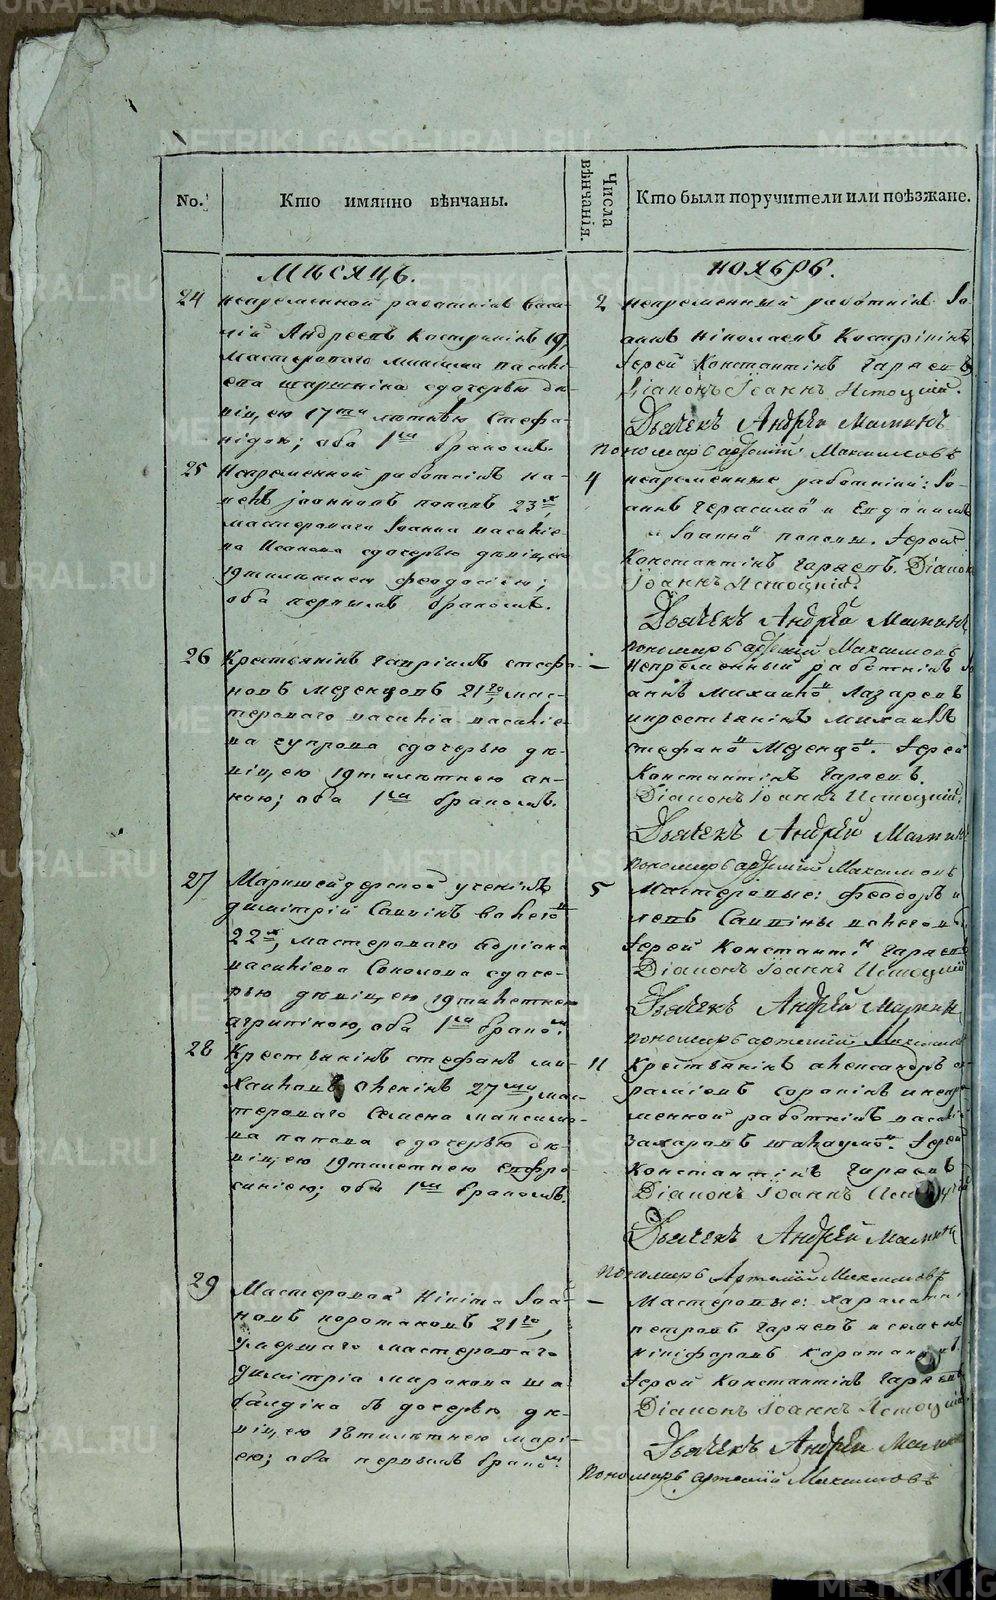 No.
Кто имянно вѣнчаны.
Числа вѣнчанія.
Кто были поручители или поѣзжане.
Мѣсяцъ.
ноябрь.
24
непременной работникъ Васи-
лій Андреевъ Костринихъ 19,
мастероваго Василі-
ева сдочерью дѣ-
віцею 17ти лѣтнѣю Стефа-
нідою; оба 1мъ бракомъ.
2
непременный работникъ Іо-
аннъ Ніколаевъ Костринихъ
Іерей Константінъ Гаряевъ
Діаконъ Іоаннъ Истоцкій.
Дьячекъ Андрей Малкинъ
Пономарь Артемій Максимовъ
25
Непременной работникъ па-
велъ Іоанновъ поповъ 23х,
мастероваго Іоанна василіе-
ва Исакова сдочерью дѣвіцею
19тилѣтнею феодосіею;
оба первымъ бракомъ.
4
непременные работники: Іо-
аннъ Герасимов и Евдокимъ
Іоаннов поповы. Іерей
Константінъ Гаряевъ. Діаконъ
Іоаннъ Истоцкій.
Дьячекъ Андрей Малкинъ
Пономарь Артемій Максимовъ
26
Крестьянинъ Гавріилъ стефа-
новъ мезенцовъ 21го, мас-
тероваго василіа василіе-
ва чупрова сдочерью дѣ-
віцею 19тилѣтнею ан-
ною; оба 1мъ бракомъ.
—
Непременный работникъ Іо-
аннъ михайлов Лазаревъ
икрестьянинъ михаилъ
стефанов Мезенцов. Іерей
Константінъ Гаряевъ.
Діаконъ Іоаннъ Истоцкій.
Дьячекъ Андрей Малкинъ
Пономарь Артемій Максимовъ
27
Маркшейдерской ученікъ
димітрій Саввінъ
22х, мастероваго Адріана
василіева Соколова сдоче-
рью дѣвіцею 19тилѣтнею
агрипіною, оба 1мъ браком.
5
Мастеровые: феодоръ и
Саввіны
Іерей Константін Гаряевъ
Діаконъ Іоаннъ Истоцкій
Дьячекъ Андрей Малкинъ
Пономарь артемій Максимовъ
28
Крестьянінъ стефанъ ми-
хайловъ 27ми, мас-
тероваго Семена максимо-
ва попова сдочерью дѣ-
віцею 19тилѣтнею евфро-
синіею; оба 1мъ бракомъ.
11
Крестьянінъ александръ
сорокінъ инепре-
менной работнікъ василій
захаровъ Іерей
Константінъ Гаряевъ
Діаконъ Іоаннъ Истоцкій
Дьячекъ Андрей Малкинъ
Пономарь Артемій Максимовъ
29
Мастеровой Нікіта Іоа-
новъ коротаковъ 21го,
умершаго мастероваго
димітріа маркова ша-
балдіна съ дочерью дѣ-
віцею 18тилѣтнею марі-
ею; оба первымъ браком.
—
Мастеровые:
петровъ Гаряевъ и семенъ
нікіфоровъ
Іерей Константінъ Гаряевъ
Діаконъ Іоаннъ Истоцкій.
Дьячекъ Андрей Малкинъ
Пономарь артемій Максимовъ
METRIKI.GASO-URAL.RU